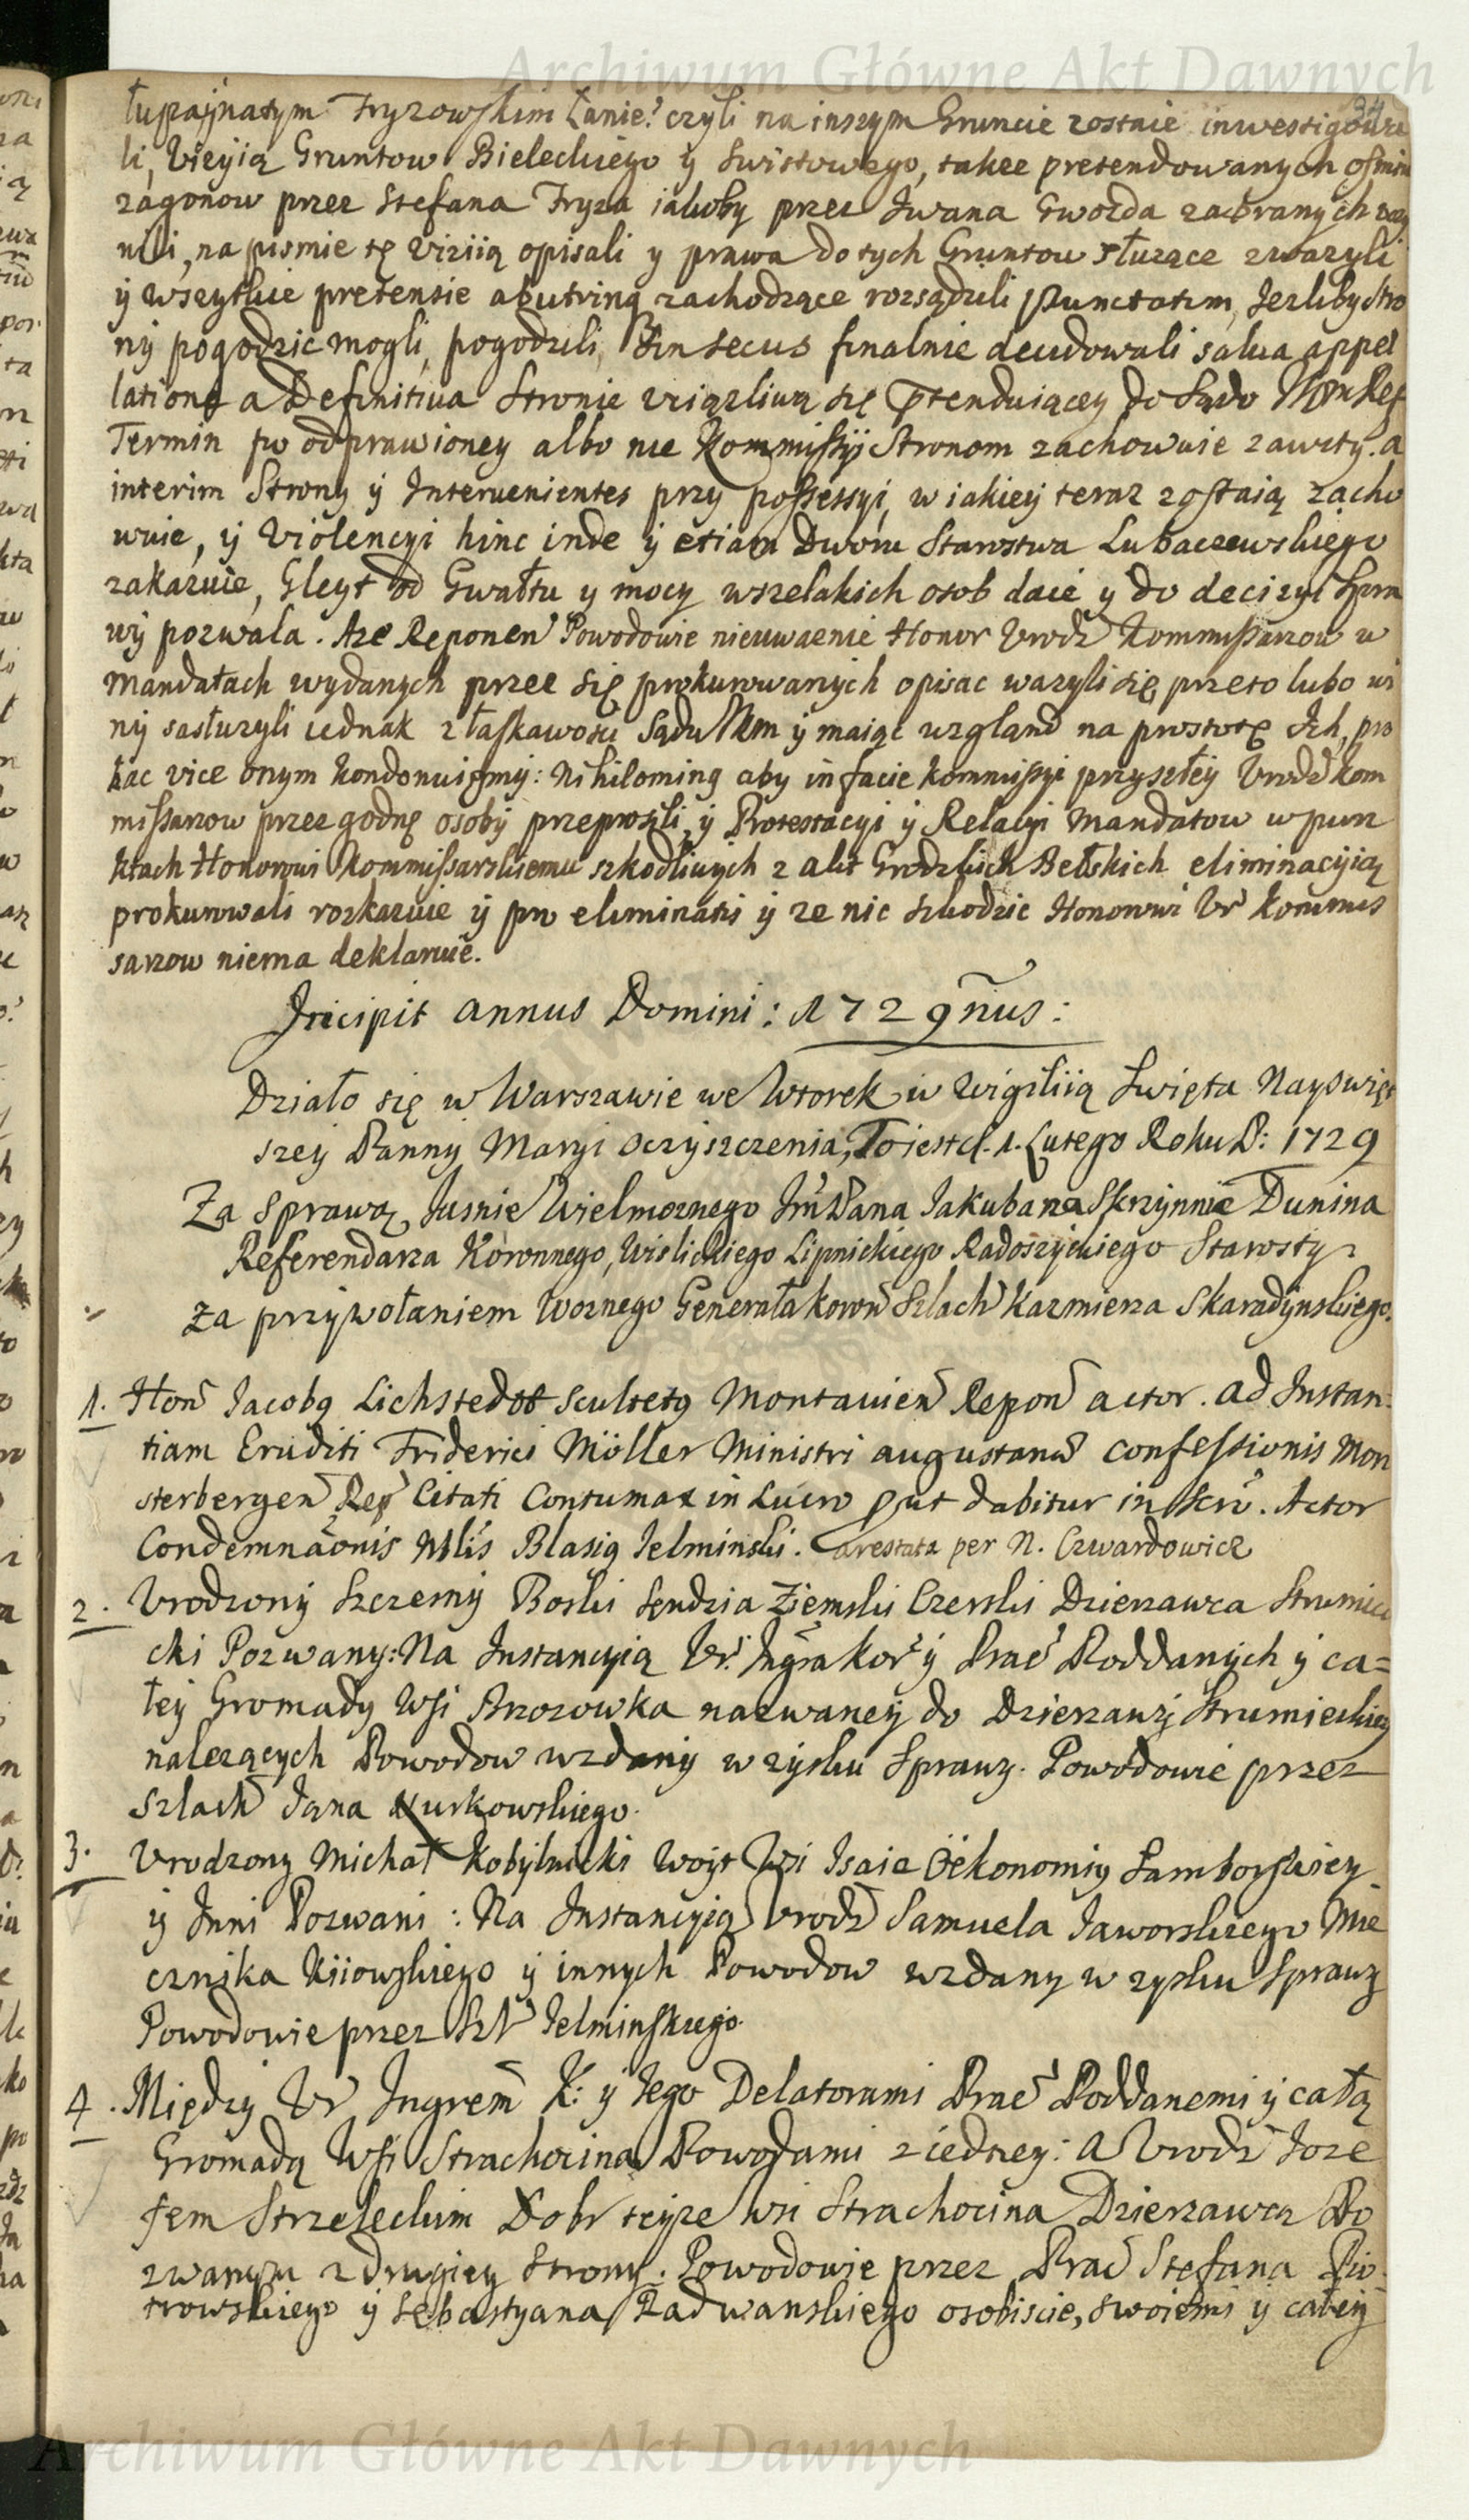 Archiwum Główne Akt Dawnych
34
tupaynatym Fryzowskim Łanie? czyli na inszym Gruncie zostaie inwestigowa
li, Vizyią Gruntow Bieleckiego y Swistowego, takze pretendowanych osmin
zagonow przez Stefana Fryza iakoby przez Iwana Gwozda zabranych uczy
nili, na pismie tę Viziią opisali y prawa do tych Gruntow słuzące zwazyli
ÿ wszytkie pretensie abutrinq zachodzące rozsądzili Punctatim, Jezliby Stro
nÿ pogodzic mogli, pogodzili, Sin secus finalnie decidowali salva appel
latione a Definitiva Stronie uciązliwą się Ptenduiącey do Sądo Nm Ref
Termin po odprawioney albo nie Kommissÿi Stronom zachowuie zawity. a
interim Strony ÿ Intervenientes przy possessyi, w iakieÿ teraz zostaią zacho
wuie, ÿ Violencyi hinc inde ÿ etiam Dworu Starostwa Lubaczewskiego
zakazuie, Gleyt od Gwałtu y mocy wszelakich osob daie y do decizyi Spra
wÿ pozwala. Aze Reponen Powodowie nieuwaznie Honor Urodz Kommissarzow w
Mandatach wydanych przez się prokurowanych opisac wazyli się, przeto lubo wi
nÿ zasłuzyli iednak z łaskawosci Sądu Nm ÿ maiąc wzgland na prostotę Ich, pro
hac vice onym kondonuięmÿ: Nihilominq aby in facie kommissyi przyszłeÿ Urodz kom
missarzow przez godnę osobÿ przeprosili, ÿ Protestacyi ÿ Relacyi Mandatow w pun
ktach Honorowi Kommissarskiemu szkodliwych z akt Grodzkich Bełskich eliminacyią
prokurowali rozkazuie ÿ pro eliminatis ÿ ze nic szkodzic Honorowi Ur Kommis
sarzow niema deklaruie.
Incipit annus Domini: 1729nus:
Działo się w Warszawie we Wtorek w Wigiliią Swięta Nayswięt
szeÿ Pannÿ Maryi Oczÿszczenia, To iest d. 1. Lutego Roku P: 1729
Za Sprawą Jasnie Wielmoznego Jm Pana Jakuba na Skrzynnie Dunina
Referendarza Koronnego, Wislickiego Lipnickiego Radoszyckiego Starosty
Za przÿwołaniem Woznego Generała koron Szlach Kazmierza Skaradÿnskiego.
1. Hon Jacobq Lichstedtt Scultetq Montavien Repon actor. ad Instan-
tiam Eruditi Friderici Möller Ministri augustana Confessionis Mon
sterbergen Rep Citati Contumax in Lucro Put dabitur in Scri. Actor
Condemnaonis Nblis Blasiq Jelminski. arestata per N. Czwardowicz
2. Urodzonÿ Szczesnÿ Boski Sendzia Ziemski Czerski Dzierzawca Strumie
cki Pozwany: Na Instancyią Ur. Ingra kor ÿ Prac Poddanych ÿ ca=
łeÿ Gromady Wsi Brzozowka nazwaneÿ do Dzierzawÿ Strumieckiey
nalezących Powodow wzdanÿ w zysku Sprawy. Powodowie przez
Szlach Jana Kurkowskiego.
3. Urodzony Michał Kobÿlnicki Woÿt Wsi Isaie Oekonomiy Samborskiey
ÿ Inni Pozwani: Na Instancyią Urodz Samuela Jaworskiego Mie
cznika Kiiowskiego ÿ innych Powodow wzdany w zysku Sprawy
Powodowie przez Szl Jelminskiego.
4. Międzÿ Ur Ingrem K: ÿ Jego Delatorami Prac Poddanemi ÿ całą
Gromadą Wsi Strachocina Powodami z iedney: a Urodz Joze
fem Strzeleckim Dobr teÿze wsi Strachocina Dzierzawcą Po
zwanym z drugiey Strony. Powodowie przez Prac Stefana Pio
trowskiego ÿ Sebastyana Radwanskiego osobiscie, swoiemi ÿ całeÿ
Archiwum Główne Akt Dawnych